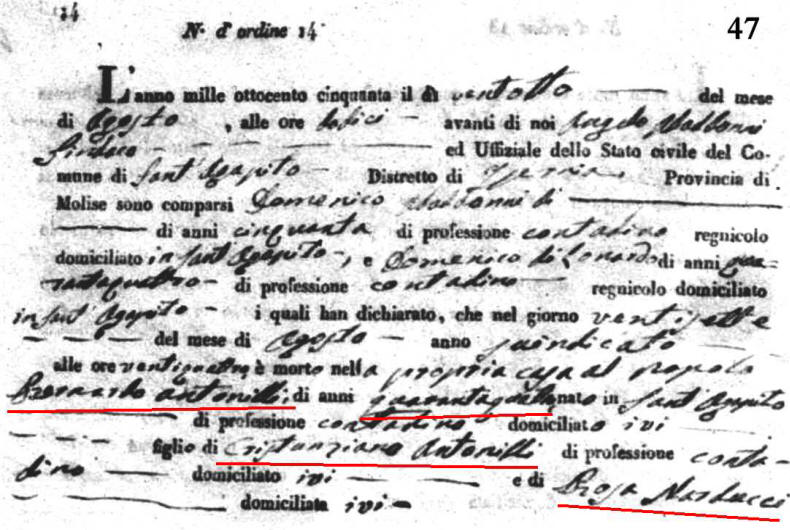 14
N. d' ordine 14
47
L'anno mille ottocento cinquanta il dì ventotto del mese
di Agosto , alle ore avanti di noi Angelo
Sindaco ed Uffiziale dello Stato civile del Co-
mune di Sant'Agapito Distretto di Provincia di
Molise sono comparsi Domenico di
di anni cinquanta di professione contadino regnicolo
domiciliato in Sant'Agapito , e Domenico di Lonardo di anni qua-
rantaquattro di professione contadino regnicolo domiciliato
in Sant'Agapito i quali han dichiarato, che nel giorno ventisette
del mese di Agosto anno suindicato
alle ore ventiquattro è morto nella propria casa al
Bernardo Antonilli di anni nato in Sant'Agapito
di professione contadino domiciliato ivi
figlio di Cristanziano Antonilli di professione conta-
dino domiciliato ivi e di Rosa Narducci
domiciliata ivi